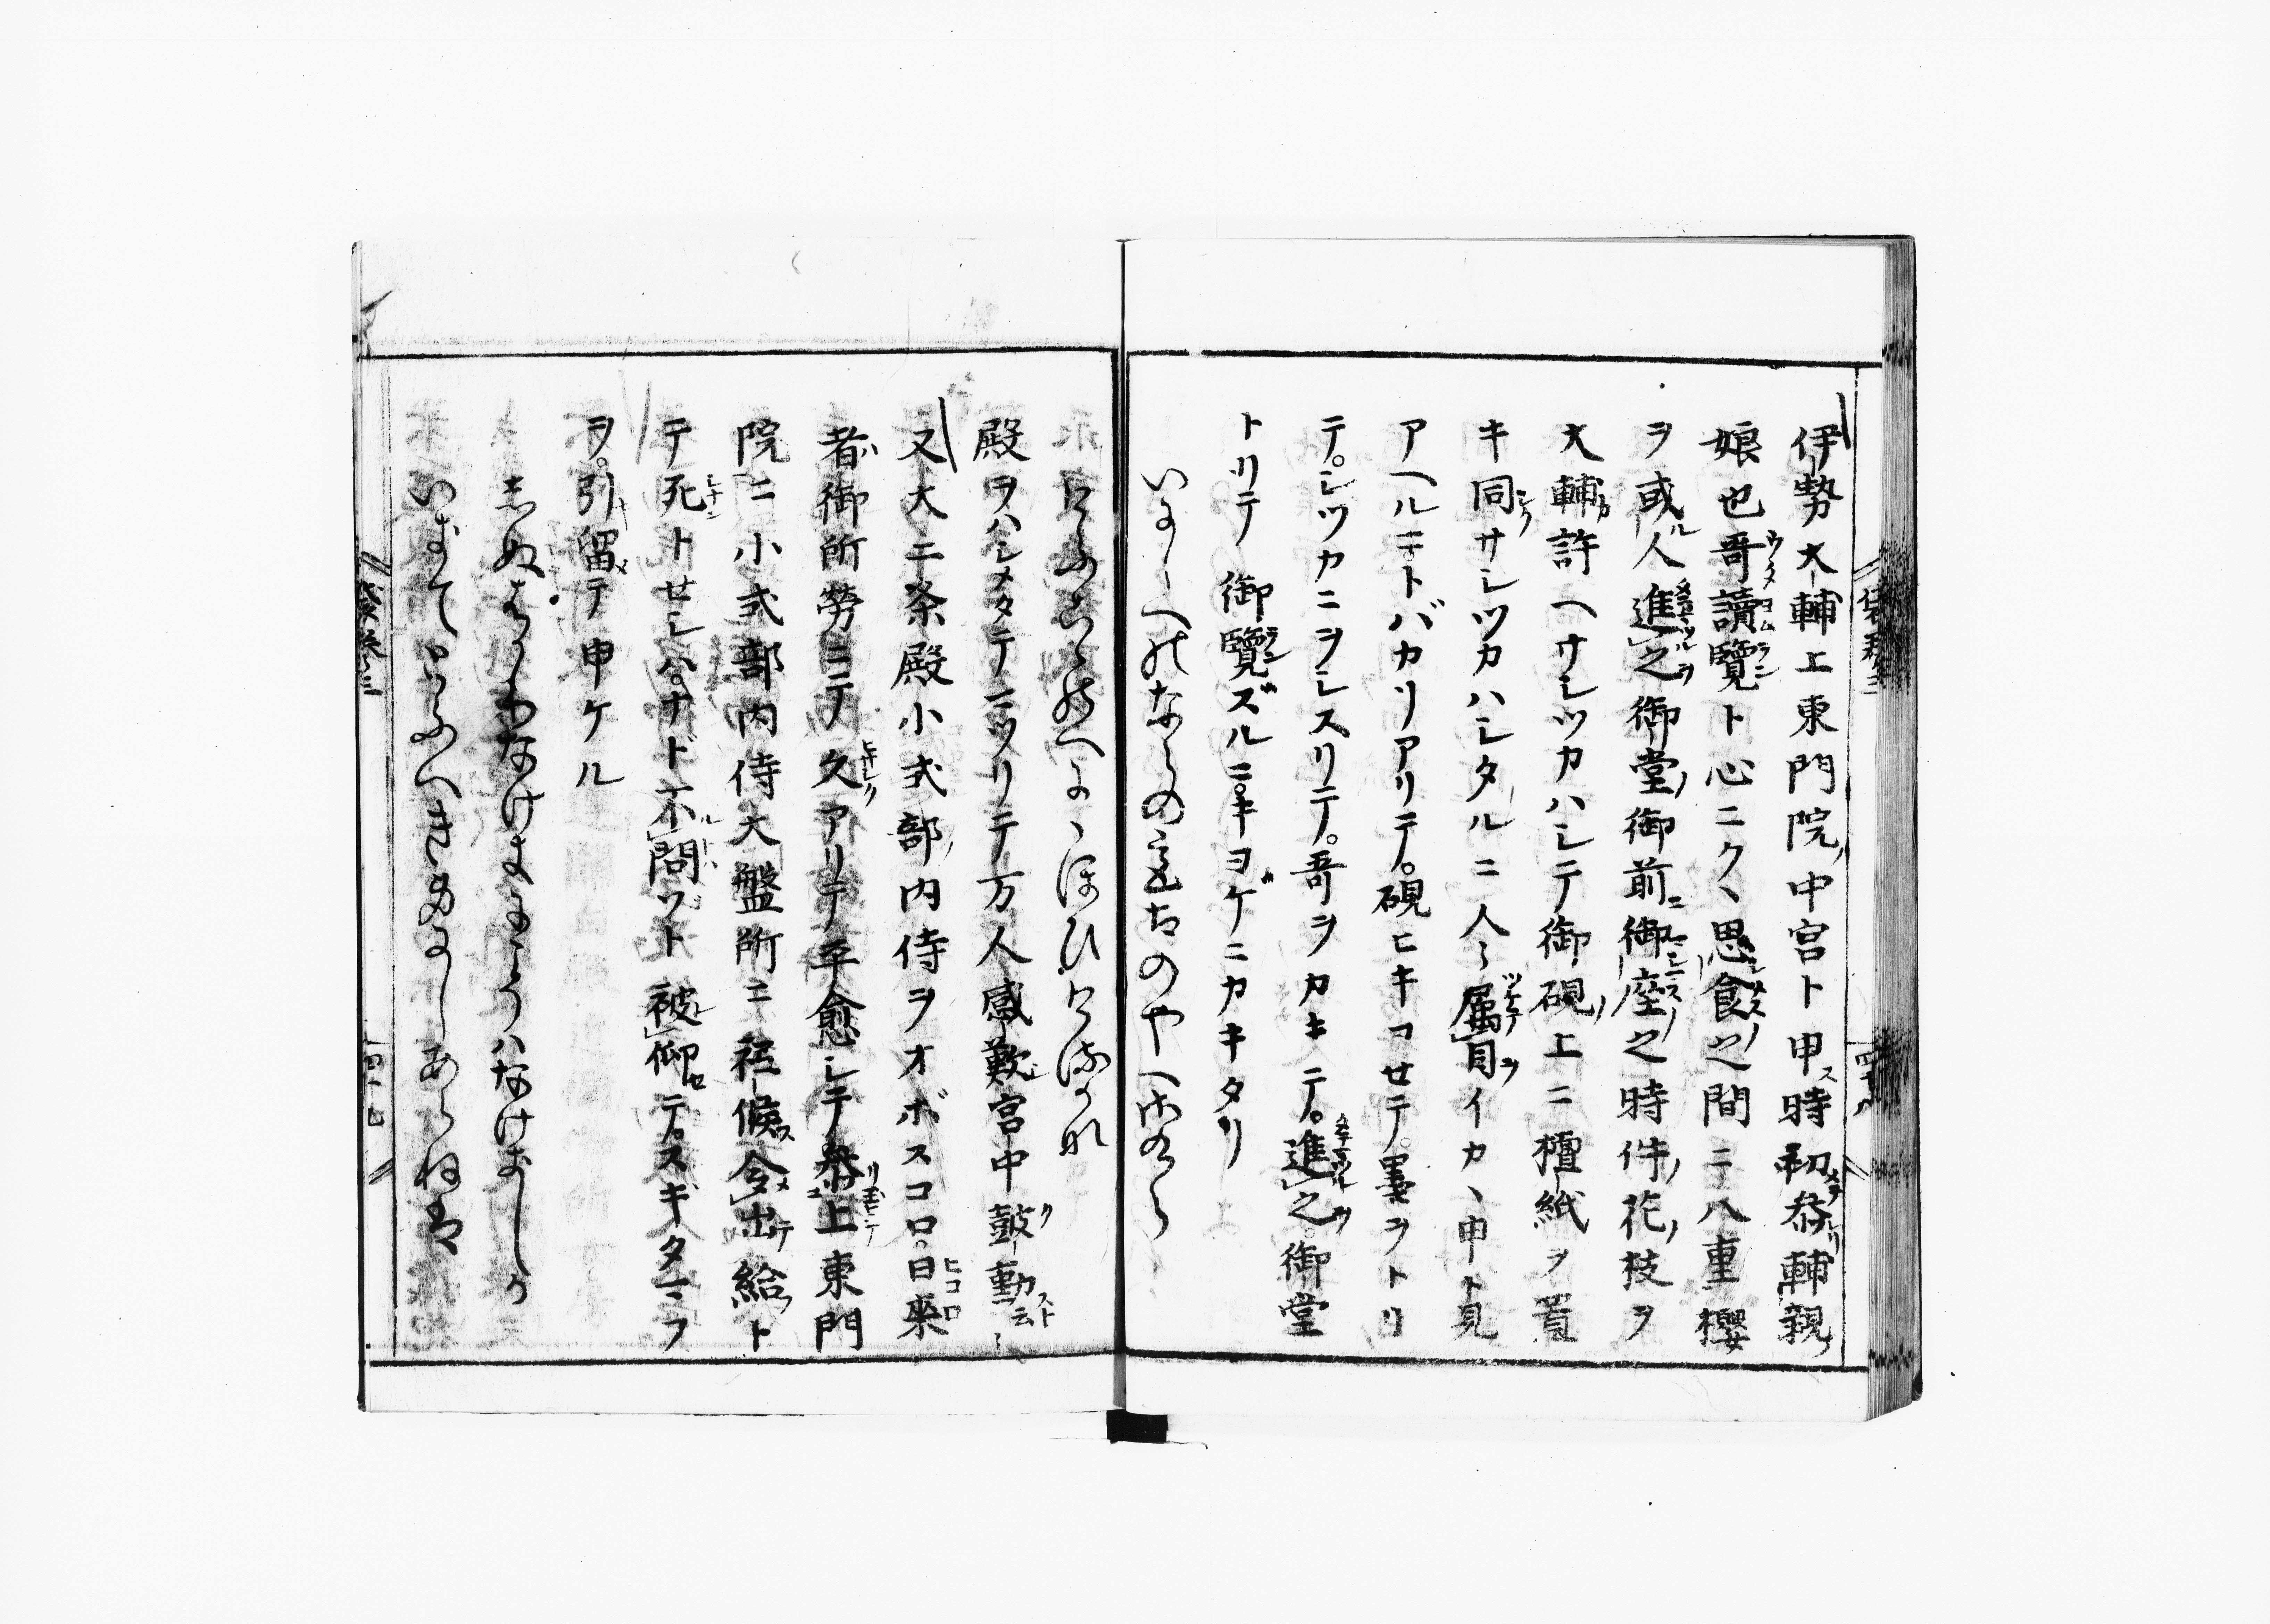 伊勢大輔上東門院ノ中宮ト申ス時初メテ参リ輔親ノ
娘也哥讀ムラント心ニクヽ思食スノ之間ニ八重櫻
ヲ或ル人進之御堂ノ御前ニ御座之時件ノ花ノ枝ヲ
大輔カ許ヘサシツカハシテ御硯ノ上ニ檀紙ヲ置
キ同シクサシツカハシタルニ人〻属目ヲイカヽ申ト見
アヘルニトバカリアリテ硯ヒキヨセテ墨ヲトリ
テシツカニヲシスリテ哥ヲカキテ進之ヲ御堂
トリテ御覽ズルニキヨゲニカキタリ
いにしへのならの京のやへさくら
けふこゝのへにゝほひけるかな
殿ヲハシメタテマツリテ万人感歎シ宮中皷動スト云〻
又大二条殿小式部ノ内侍ヲオボスコロ日來
者御所勞ニテ久シクアリテ平愈シテ参上東門
院ニ小式部内侍大盤所ニ祗候ス令出給フト
テ死ナントセシハナド不問ソト被仰テスギタマフ
ヲ引留メテ申ケル
しぬはかりなけきにこそはなけきしか
いきてとふへき身にしあらねは